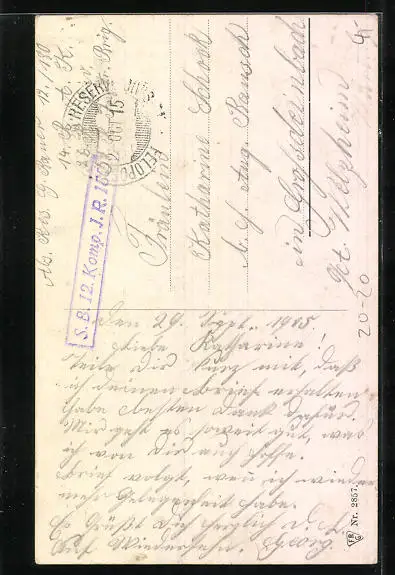 Abs. Res. G. Sauer 12./180
14. R.
S. B. 12. Komp. I. R. 180
RESERVE
FELDPO
15
Fräulein
Katharine Schock
b. H. Aug. Rausch
in Großdeinbach
Ot. Welzheim
20-20
Den 29. Sept. 1915.
Liebe Katharine!
Teile Dir kurz mit, daß
ich deinen Brief erhalten
habe besten Dank dafür.
Mir geht es soweit gut, was
ich von Dir auch hoffe.
Brief folgt, wen ich wieder
mehr Gelegenheit habe.
Es Grüßt Dich herzlich
Auf Wiedersehn. Georg.
FB G Nr. 2857.